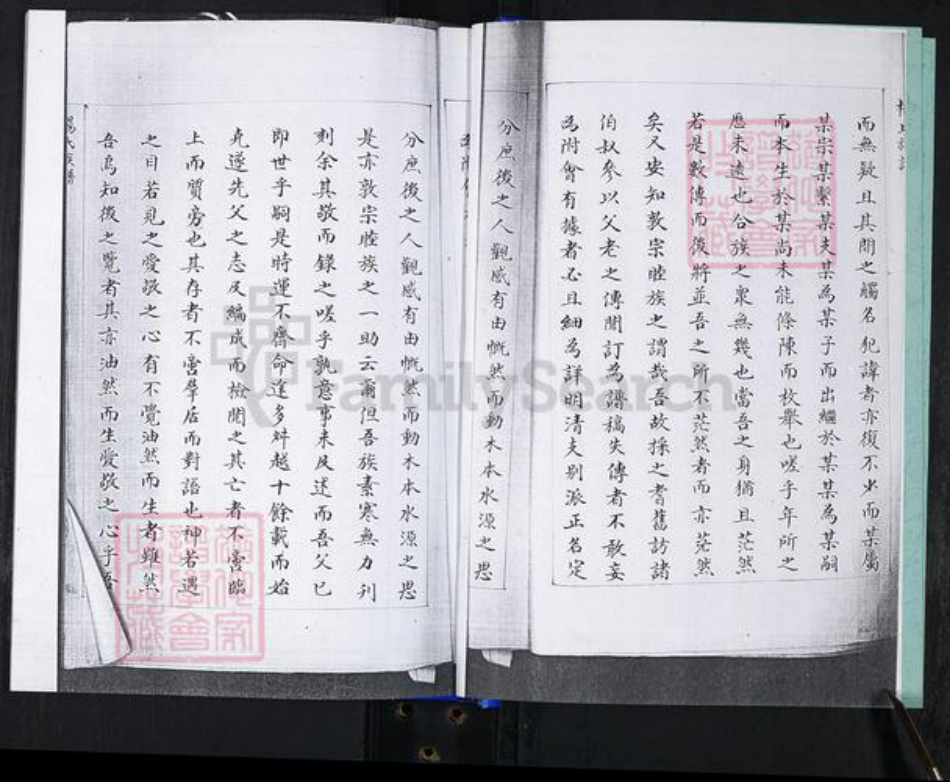 而無疑且其間之觸名犯諱者亦復不少而某屬
某宗某繫某夫某為某子而出繼於某某為某嗣
而本生於某尚未能條陳而枚舉也嗟乎年所之
歷未遠也合族之衆無幾也當吾之身猶且茫然
若是數傳而後將並吾之所不茫然者而亦茫然
矣又安知敦宗睦族之謂哉吾故採之耆舊訪諸
伯叔參以父老之傳聞訂為譜稿失傳者不敢妄
為附會有據者必且細為詳明清夫別派正名定
分庶後之人觀感有由慨然而動木本水源之思
分庶後之人觀感有由慨然而動木本水源之思
是亦敦宗睦族之一助云爾但吾族素寒無力刊
刻余其敬而錄之嗟乎孰意事未及述而吾父已
即世乎嗣是時運不齊命途多舛越十餘載而始
克遂先父之志及編成而檢閱之其亡者不啻臨
上而質旁也其存者不啻羣居而對語也神若遇
之目若見之愛敬之心有不覺油然而生者雖然
吾烏知後之覽者其亦油然而生愛敬之心乎
楊氏族譜
FamilySearch